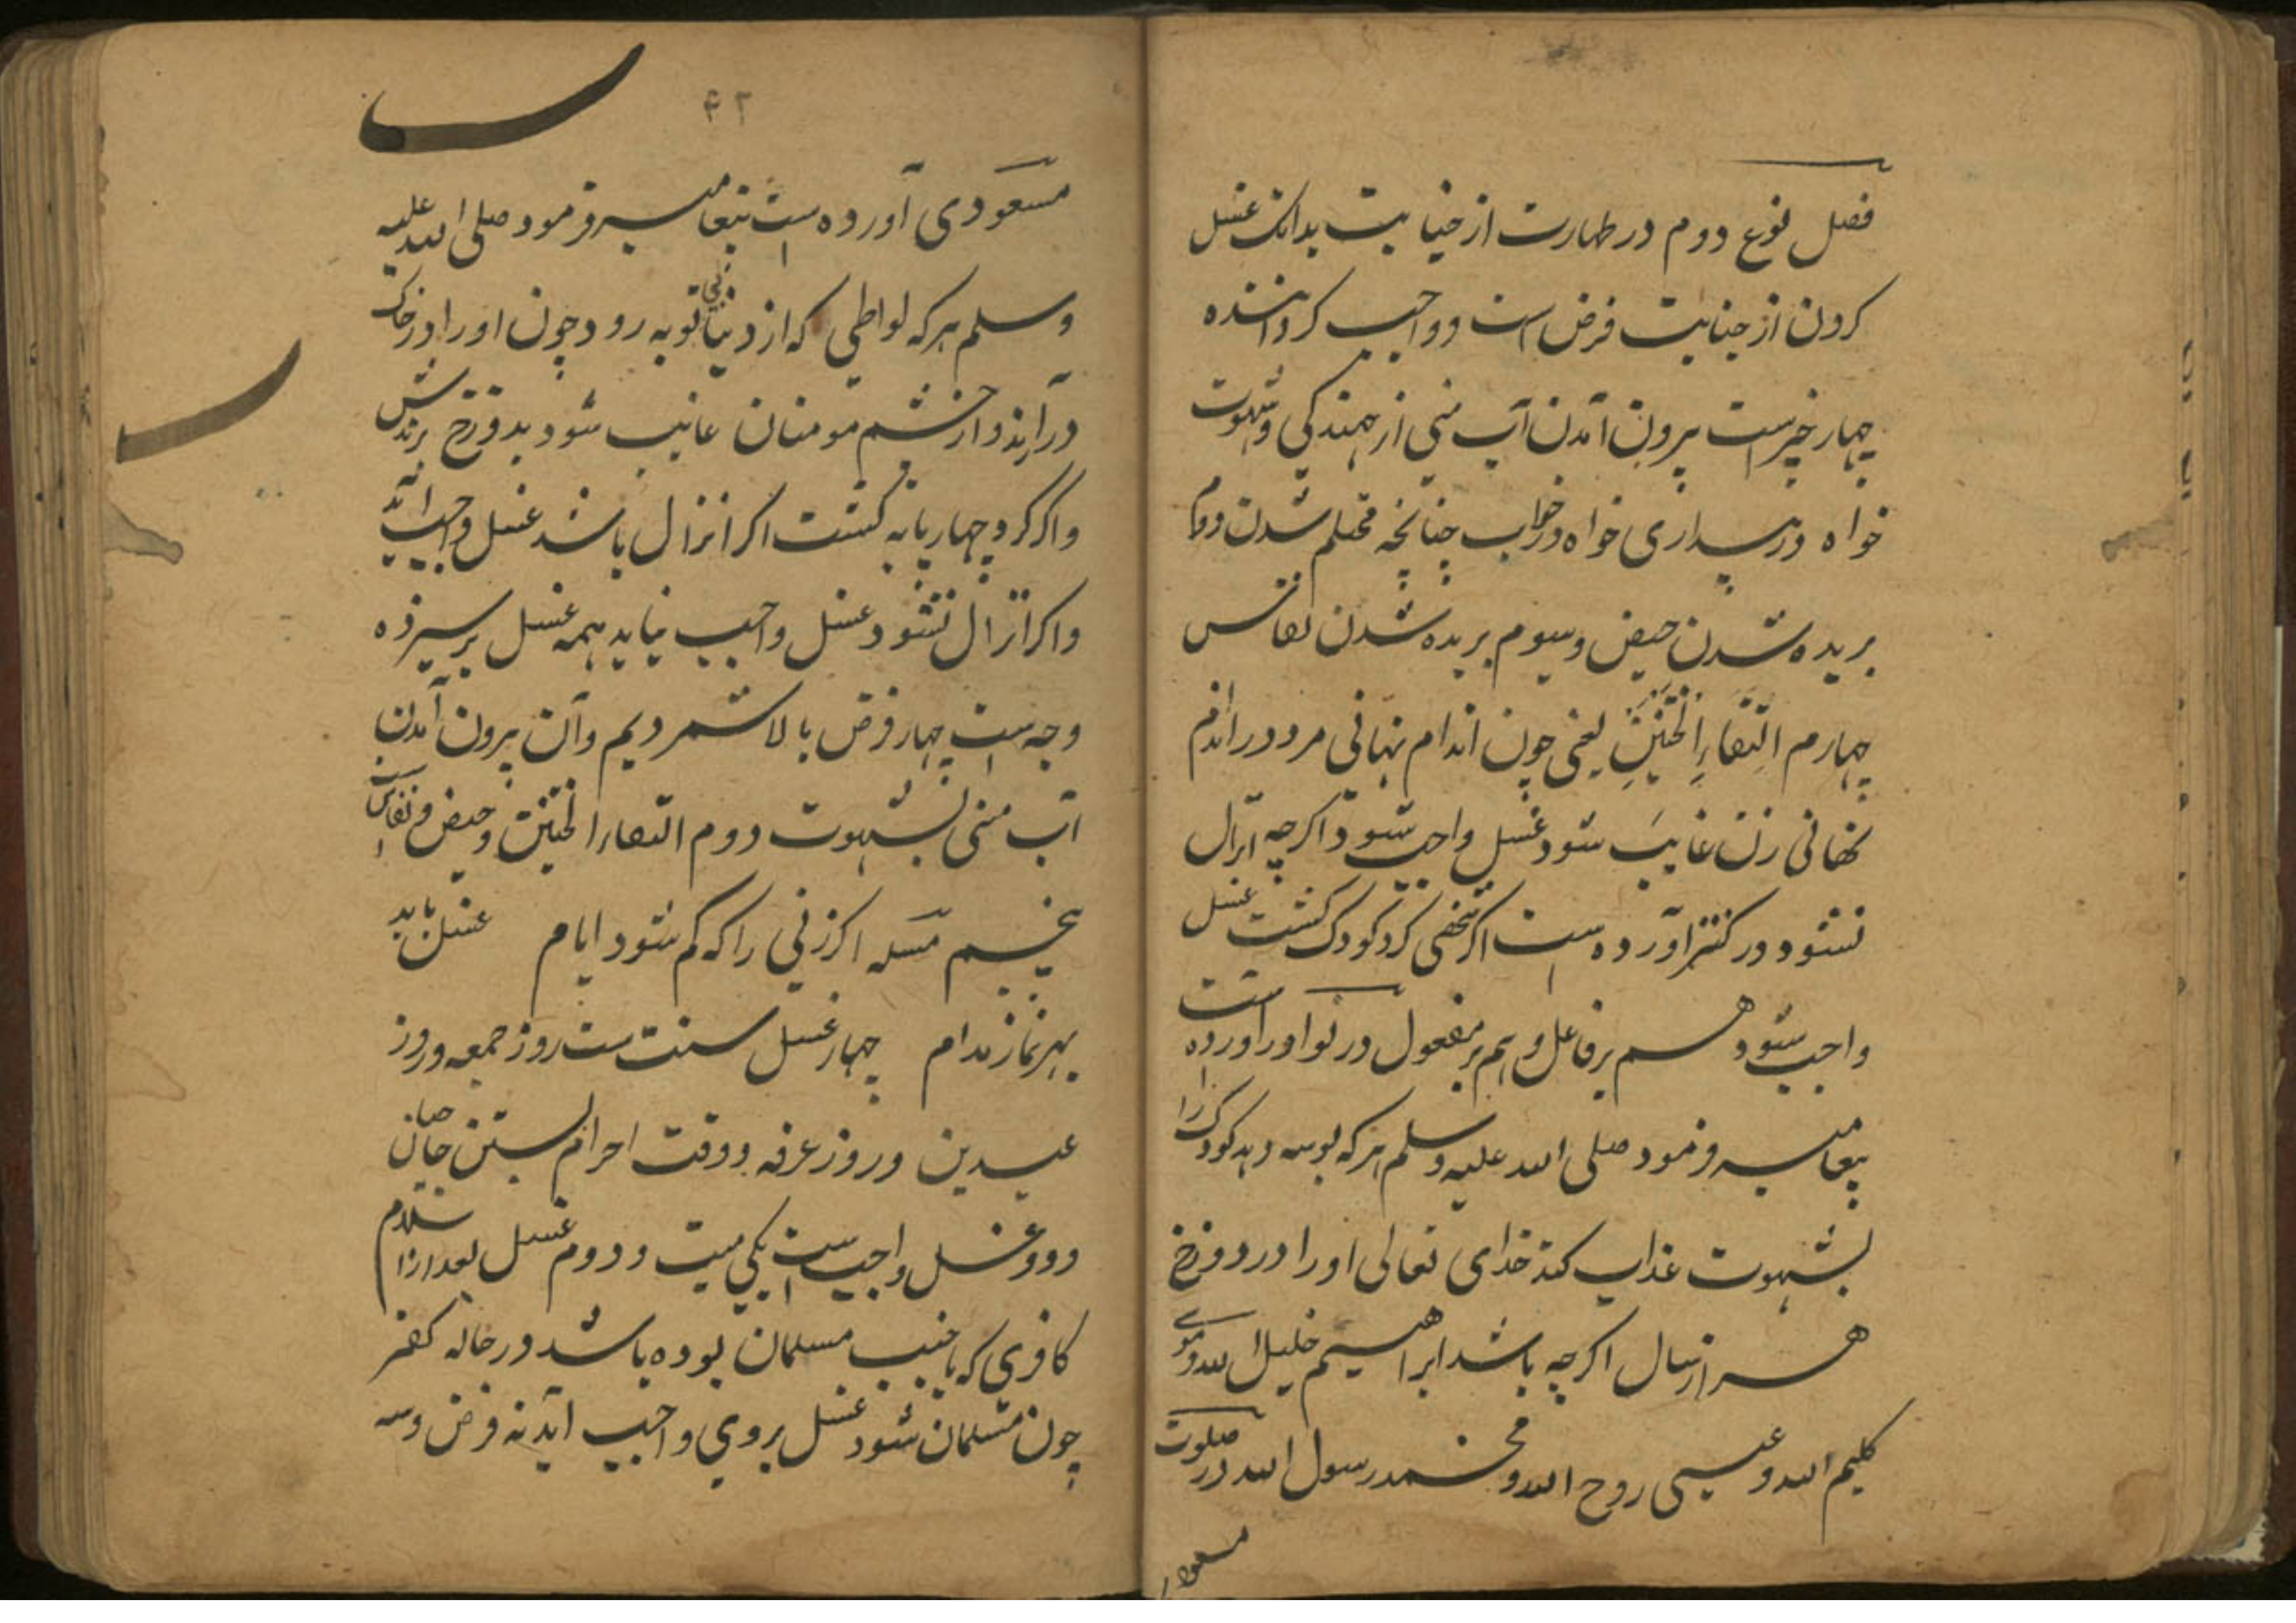 فصل نوع دوم در طهارت از جنابت بدانک غسل
کردن از جنابت فرض است و واجب کرداننده
چهار چیز است بیرون آمدن آب منی از جهندکی و شهوت
خواه در بیداری خواه در خواب چنانچه محتلم شدن دوم
بریده شدن حیض و سیوم بریده شدن نفاس
چهارم التقاء الختنین یعنی چون اندام نهانی مرد در اندام
نهانی زن غایب شود غسل واجب شود اکرچه انزال
نشود و در کنز آورده است اکر شخصی کرد کودک کشت غسل
واجب شود هم بر فاعل و هم بر مفعول در نوادر آورده است
پیغامبر فرمود صلی الله علیه وسلم هر که بوسه دهد کودک را
بشهوت عذاب کند خدای تعالی او را در دوزخ
هزار سال اکرچه باشد ابراهیم خلیل الله و موسی
کلیم الله و عیسی روح الله و محمد رسول الله در صلوت
مسعودی
۴۲
مسعودی آورده است پیغامبر فرمود صلی الله علیه
وسلم هر که لواطی که از دنیا بی توبه رود چون او را در خاک
در آرند و از چشم مومنان غایب شود بدوزخ برندش
و اکر کرد چهارپایه کشت اکر انزال باشد غسل واجب آید
و اکر انزال نشود غسل واجب نیاید همه غسل بر سیزده
وجه است چهار فرض بالا شمردیم و آن بیرون آمدن
آب منی بشهوت دوم التقاء الختنین و حیض و نفاس است
پنجم مسله اکر زنی را که کم شود ایام غسل باید
بهر نماز مدام چهار غسل سنت است روز جمعه و روز
عیدین و روز عرفه و وقت احرام بستن حاجیان
و دو غسل واجب است یکی میت و دوم غسل بعد از اسلام
کافری که یا جنب مسلمان بوده باشد در حاله کفر
چون مسلمان شود غسل بر وی واجب آید نه فرض و سه